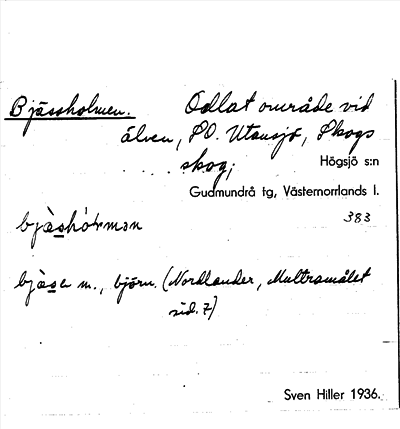 Bjässholmen. Odlat område vid
älven, SO. Utansjö, Skogs
skog;
Högsjö s:n
Gudmundrå tg, Västernorrlands l.
383
bjàshó̀rmən
bjàsɑ m., björn. (Nordlander, Multråmålet
sid. 7)
Sven Hiller 1936.